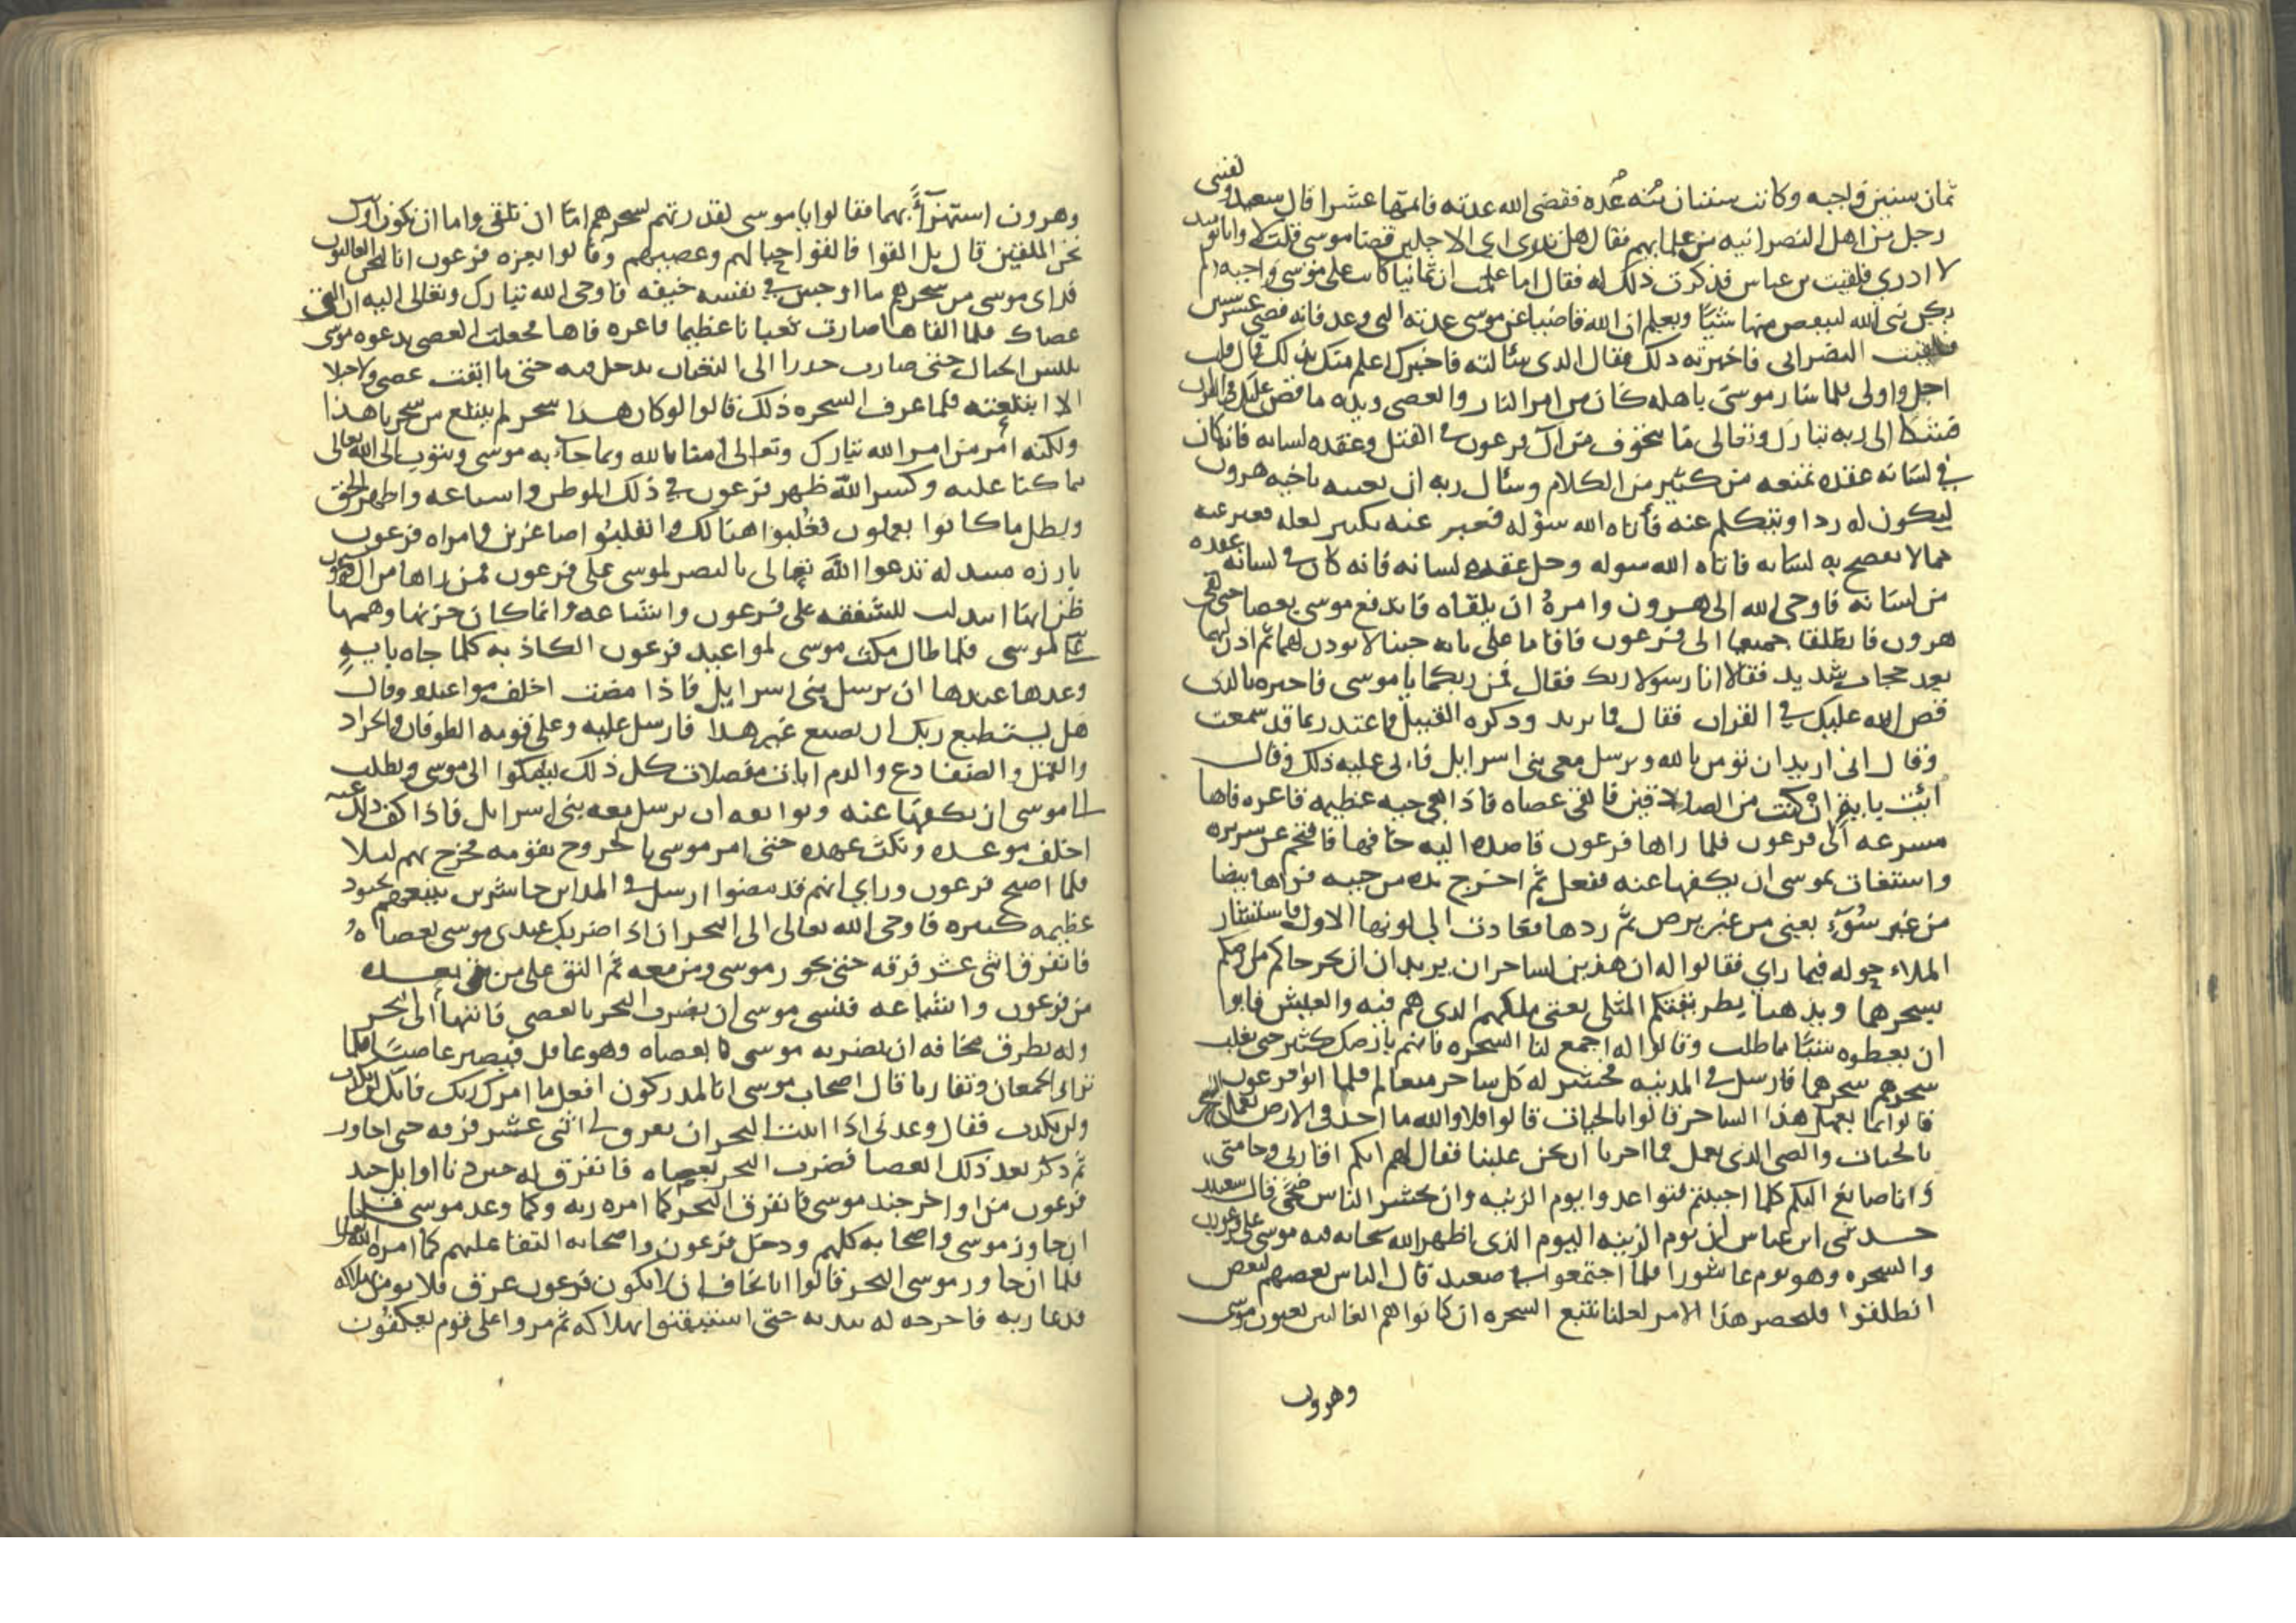 ثمان سنين واجبه وكانت سنتان منه عده فقضى الله عدته فاتمها عشرا قال سعيد لقيني
رجل من اهل النصرانيه من علمايهم فقال هل تدرى اى الاجلين قضا موسى قلت لا وانا يوميد
لا ادري فلقيت بن عباس فذكرت ذلك له فقال اما علمت ان ثمانيا كانت على موسى واجبه لم
يكن نبى الله لينقص منها شيئا ويعلم ان الله قاضيا عن موسى عدته التى وعد فانه قضى عشر سنين
فلقيت النصرانى فاخبرته ذلك فقال الذى سئالته فاخبرك اعلم منك بذلك قال قلت
اجل واولى فلما سار موسى باهله كان من امر النار والعصى ويده ما قص عليك في القران
فشكا الى ربه تبارك وتعالى ما يتخوف من آل فرعون في القتل وعقده لسانه فانه كان
في لسانه عقده تمنعه من كثير من الكلام وسئال ربه ان يعينه باخيه هرون
ليكون له ردا ويتكلم عنه فأتاه الله سؤله فعبر عنه بكبير لعله فعبر عنه
مما لا يفصح به لسانه فاتاه الله سوله وحل عقده لسانه فانه كان في لسانه عقده
من لسانه فاوحى الله الى هرون وامره ان يلقاه فاندفع موسى بعصا حتى لقى
هرون فانطلقا جميعا الى فرعون فاقاما على بابه حينا لا يوذن لهما ثم اذن لهما
بعد حجاب شديد فقالا انا رسولا ربك فقال فمن ربكما يا موسى فاخبره بالذى
قص الله عليك في القران فقال فما تريد وذكره القتيل فاعتذر بما قد سمعت
وقال انى اريد ان تؤمن بالله وترسل معى بنى اسرايل فابى عليه ذلك وقال
ائيت باية ان كنت من الصادقين فالقى عصاه فاذا هي حيه عظيمه فاغره فاها
مسرعه الى فرعون فلما راها فرعون قاصده اليه خافها فاقتحم عن سريره
واستغاث بموسى ان يكفها عنه ففعل ثم اخرج يده من جيبه فراها بيضا
من غير سوء يعنى من غير برص ثم ردها فعادت الى لونها الاول فاستشار
الملاء حوله فيما راي فقالوا له ان هذين لساحران يريدان ان يخرجاكم من ارضكم
بسحرهما ويذهبا بطريقتكم المثلى يعنى ملكهم الذى هم فيه والعيش فابوا
ان يعطوه شيئا مما طلب وقالوا له اجمع لنا السحره فانهم بارضك كثير حتى يغلب
سحرهم سحرهما فارسل في المدينه فحشر له كل ساحر متعالم فلما اتوا فرعون
قالوا بما يعمل هذا الساحر قالوا بالحيات قالوا فلا والله ما احد في الارض يعمل السحر
بالحيات والعصى الذى يعمل فما اجرنا ان نحن غلبنا فقال لهم انكم اقاربى وحامتى
وانا صانع اليكم كلما احببتم فتواعدوا يوم الزينه وان يحشر الناس ضحى قال سعيد
حدثنى ابن عباس ان يوم الزينه اليوم الذى اظهر الله سبحانه فيه موسى على فرعون
والسحره وهو يوم عاشورا فلما اجتمعوا في صعيد قال الناس بعضهم لبعض
انطلقوا فلنحضر هذا الامر لعلنا نتبع السحره ان كانوا هم الغالبين يعنون موسى
وهرون
وهرون استهزآءً بهما فقالوا يا موسى لقدرتهم بسحرهم اما ان تلقى واما ان نكون اول
نحن الملقين قال بل القوا فالقوا حبالهم وعصيهم وقالوا بعزه فرعون انا لنحن الغالبون
فراى موسى من سحرهم ما اوجس في نفسه خيفه فاوحى الله تبارك وتعالى اليه ان الق
عصاك فلما القاها صارت ثعبانا عظيما فاغره فاها فجعلت العصى بدعوه موسى
تلتبس الحبال حتى صارت جدرا الى الثعبان يدخل فيه حتى ما ابقت عصى ولا حبلا
الا ابتلعته فلما عرف السحره ذلك قالوا لو كان هذا سحر لم يبتلع من سحرنا هذا
ولكنه أمر من امر الله تبارك وتعالى امنا بالله وبما جاء به موسى ونتوب الى الله تعالى
مما كنا عليه وكسر الله ظهر فرعون في ذلك الموطن واشياعه واظهر الحق
وبطل ما كانوا يعملون فغلبوا هنالك وانقلبوا صاغرين وامراه فرعون
بارزه مبتذله تدعوا الله تعالى بالنصر لموسى على فرعون فمن راها من ال فرعون
ظن انها ابتذلت للشفقه على فرعون واشياعه وانما كان حزنها وهمها
لموسى فلما طال مكث موسى لمواعيد فرعون الكاذبه كلما جاه بايه
وعدها عندها ان يرسل بنى اسرايل فاذا مضت اخلف مواعيده وقال
هل يستطيع ربك ان يصنع غير هذا فارسل عليه وعلى قومه الطوفان والجراد
والقمل والضفادع والدم ايات مفصلات كل ذلك يشكوا الى موسى ويطلب
الى موسى ان يكفها عنه ويواثقه ان يرسل معه بنى اسرايل فاذا كف ذلك عنه
اخلف موعده ونكث عهده حتى امر موسى بالخروج بقومه فخرج بهم ليلا
فلما اصبح فرعون وراى انهم قد مضوا ارسل في المداين حاشرين يتبعهم بجنود
عظيمه كثيره فاوحى الله تعالى الى البحر ان اذا ضربك عبدى موسى بعصاه
فانفرق اثنى عشر فرقه حتى يجوز موسى ومن معه ثم التق على من بقى بعده
من فرعون واشياعه فنسى موسى ان يضرب البحر بالعصى فانتها الى البحر
وله يطرق مخافه ان يضربه موسى بعصاه وهو غافل فيصير عاصيا فلما
تراء الجمعان وتقاربا قال اصحاب موسى انا لمدركون افعل ما امرك ربك فانك لم تكذب
ولن تكذب فقال وعدنى اذا اتيت البحر ان يفرق لى اثنى عشر فرقه حتى اجاوز
ثم ذكر بعد ذلك العصا فضرب البحر بعصاه فانفرق له حين دنا اوايل جند
فرعون من اواخر جند موسى فانفرق البحر كما امره ربه وكما وعد موسى فلما
ان جاوز موسى واصحابه كلهم ودخل فرعون واصحابه التقا عليهم كما امره الله تعالى
فلما ان جاوز موسى البحر قالوا انا نخاف ان لا يكون فرعون غرق فلا نومن بهلاكه
فدعا ربه فاخرجه له ببدنه حتى استيقنوا بهلاكه ثم مروا على قوم يعكفون